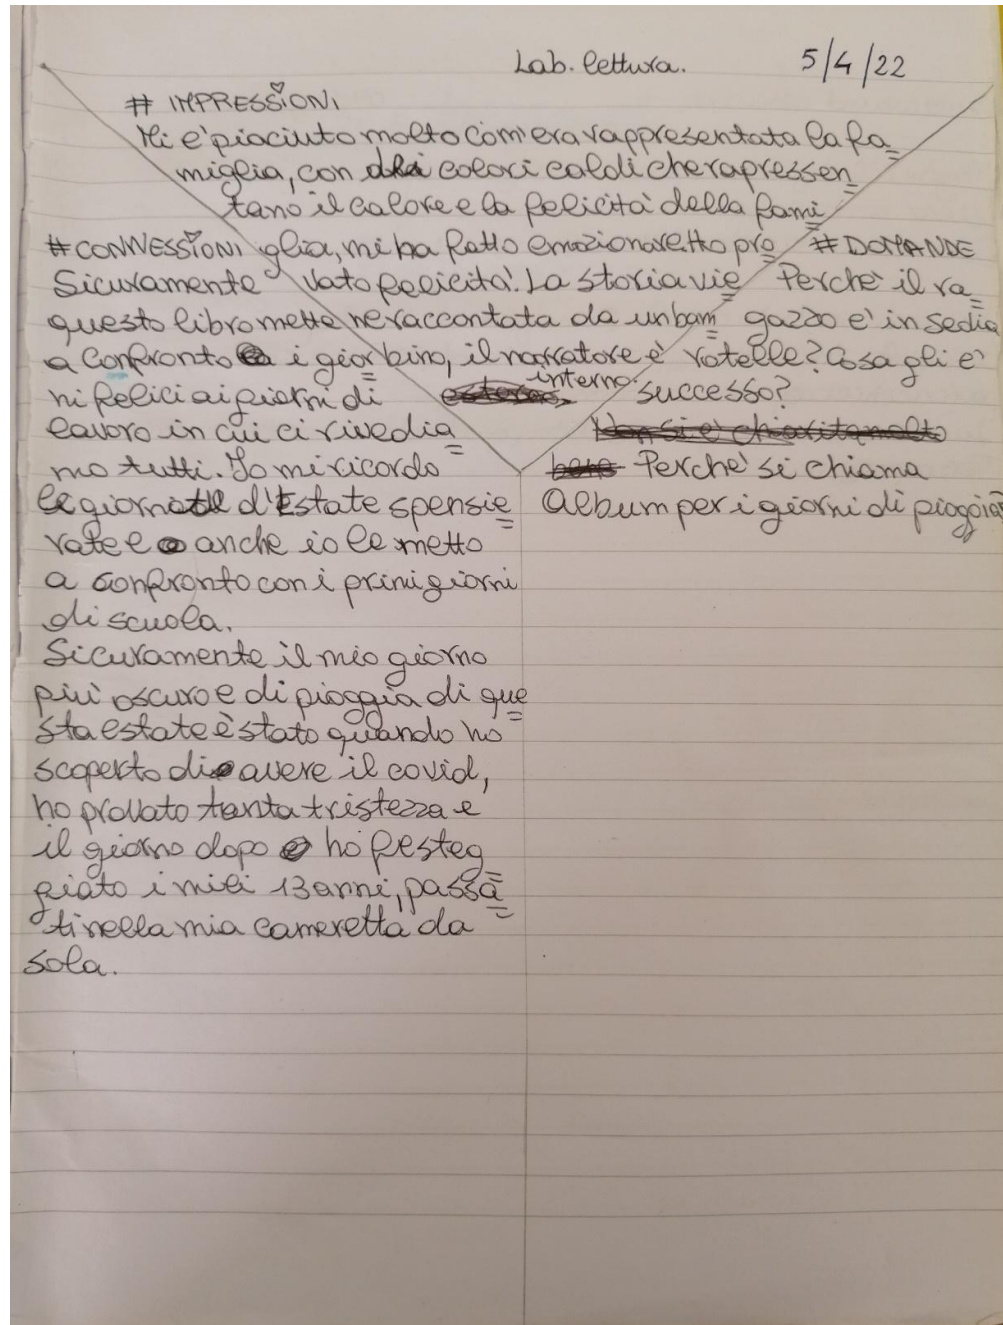 Lab. lettura. 5/4/22
# IMPRESSIONI
Mi e' piaciuto molto com'era rappresentata la fa=
miglia, con colori caldi che rapressen=
tano il calore e la felicità della fami=
glia, mi ha fatto emozionare. Ho pro=
vato felicità! La storia vie=
ne raccontata da un bam=
bino, il narratore è
interno.
# CONNESSIONI
Sicuramente
questo libro mette
a confronto i gior=
ni felici ai giorni di
lavoro in cui ci rivedia=
mo tutti. Io mi ricordo
le giornate d'Estate spensie=
rate e anche io le metto
a confronto con i primi giorni
di scuola.
Sicuramente il mio giorno
più oscuro e di pioggia di que=
sta estate è stato quando ho
scoperto di avere il covid,
ho provato tanta tristezza e
il giorno dopo ho festeg=
giato i miei 13 anni, passa=
ti nella mia cameretta da
sola.
# DOMANDE
Perché il ra=
gazzo e' in sedia
rotelle? Cosa gli e'
successo?
Perche' si chiama
Album per i giorni di pioggia?